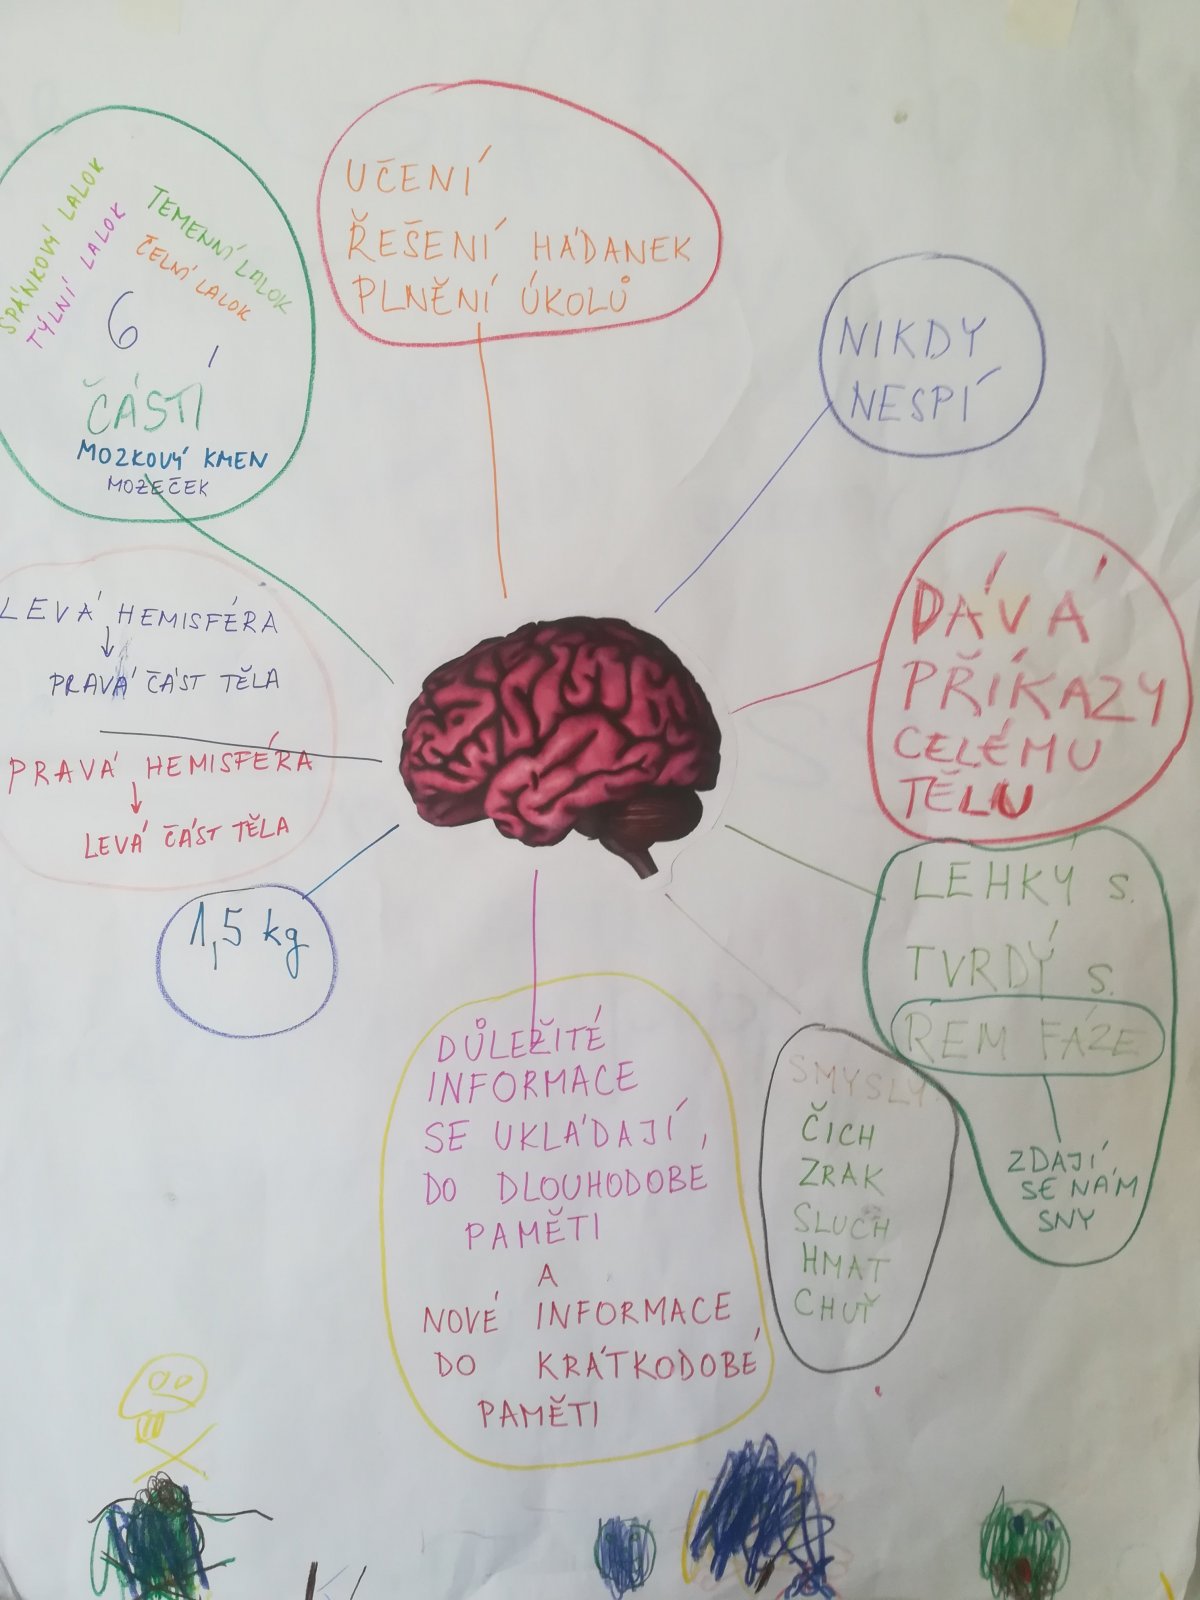 SPÁNKOVÝ LALOK
TÝLNÍ LALOK
TEMENNÍ LALOK
ČELNÍ LALOK
6
ČÁSTÍ
MOZKOVÝ KMEN
MOZEČEK
UČENÍ
ŘEŠENÍ HÁDANEK
PLNĚNÍ ÚKOLŮ
NIKDY
NESPÍ
LEVÁ HEMISFÉRA
PRAVÁ ČÁST TĚLA
PRAVÁ HEMISFÉRA
LEVÁ ČÁST TĚLA
DÁVÁ
PŘÍKAZY
CELÉMU
TĚLU
1,5 kg
LEHKÝ s.
TVRDÝ s.
REM FÁZE
ZDAJÍ
SE NÁM
SNY
DŮLEŽITÉ
INFORMACE
SE UKLÁDAJÍ
DO DLOUHODOBÉ
PAMĚTI
A
NOVÉ INFORMACE
DO KRÁTKODOBÉ
PAMĚTI
SMYSLY
ČICH
ZRAK
SLUCH
HMAT
CHUŤ